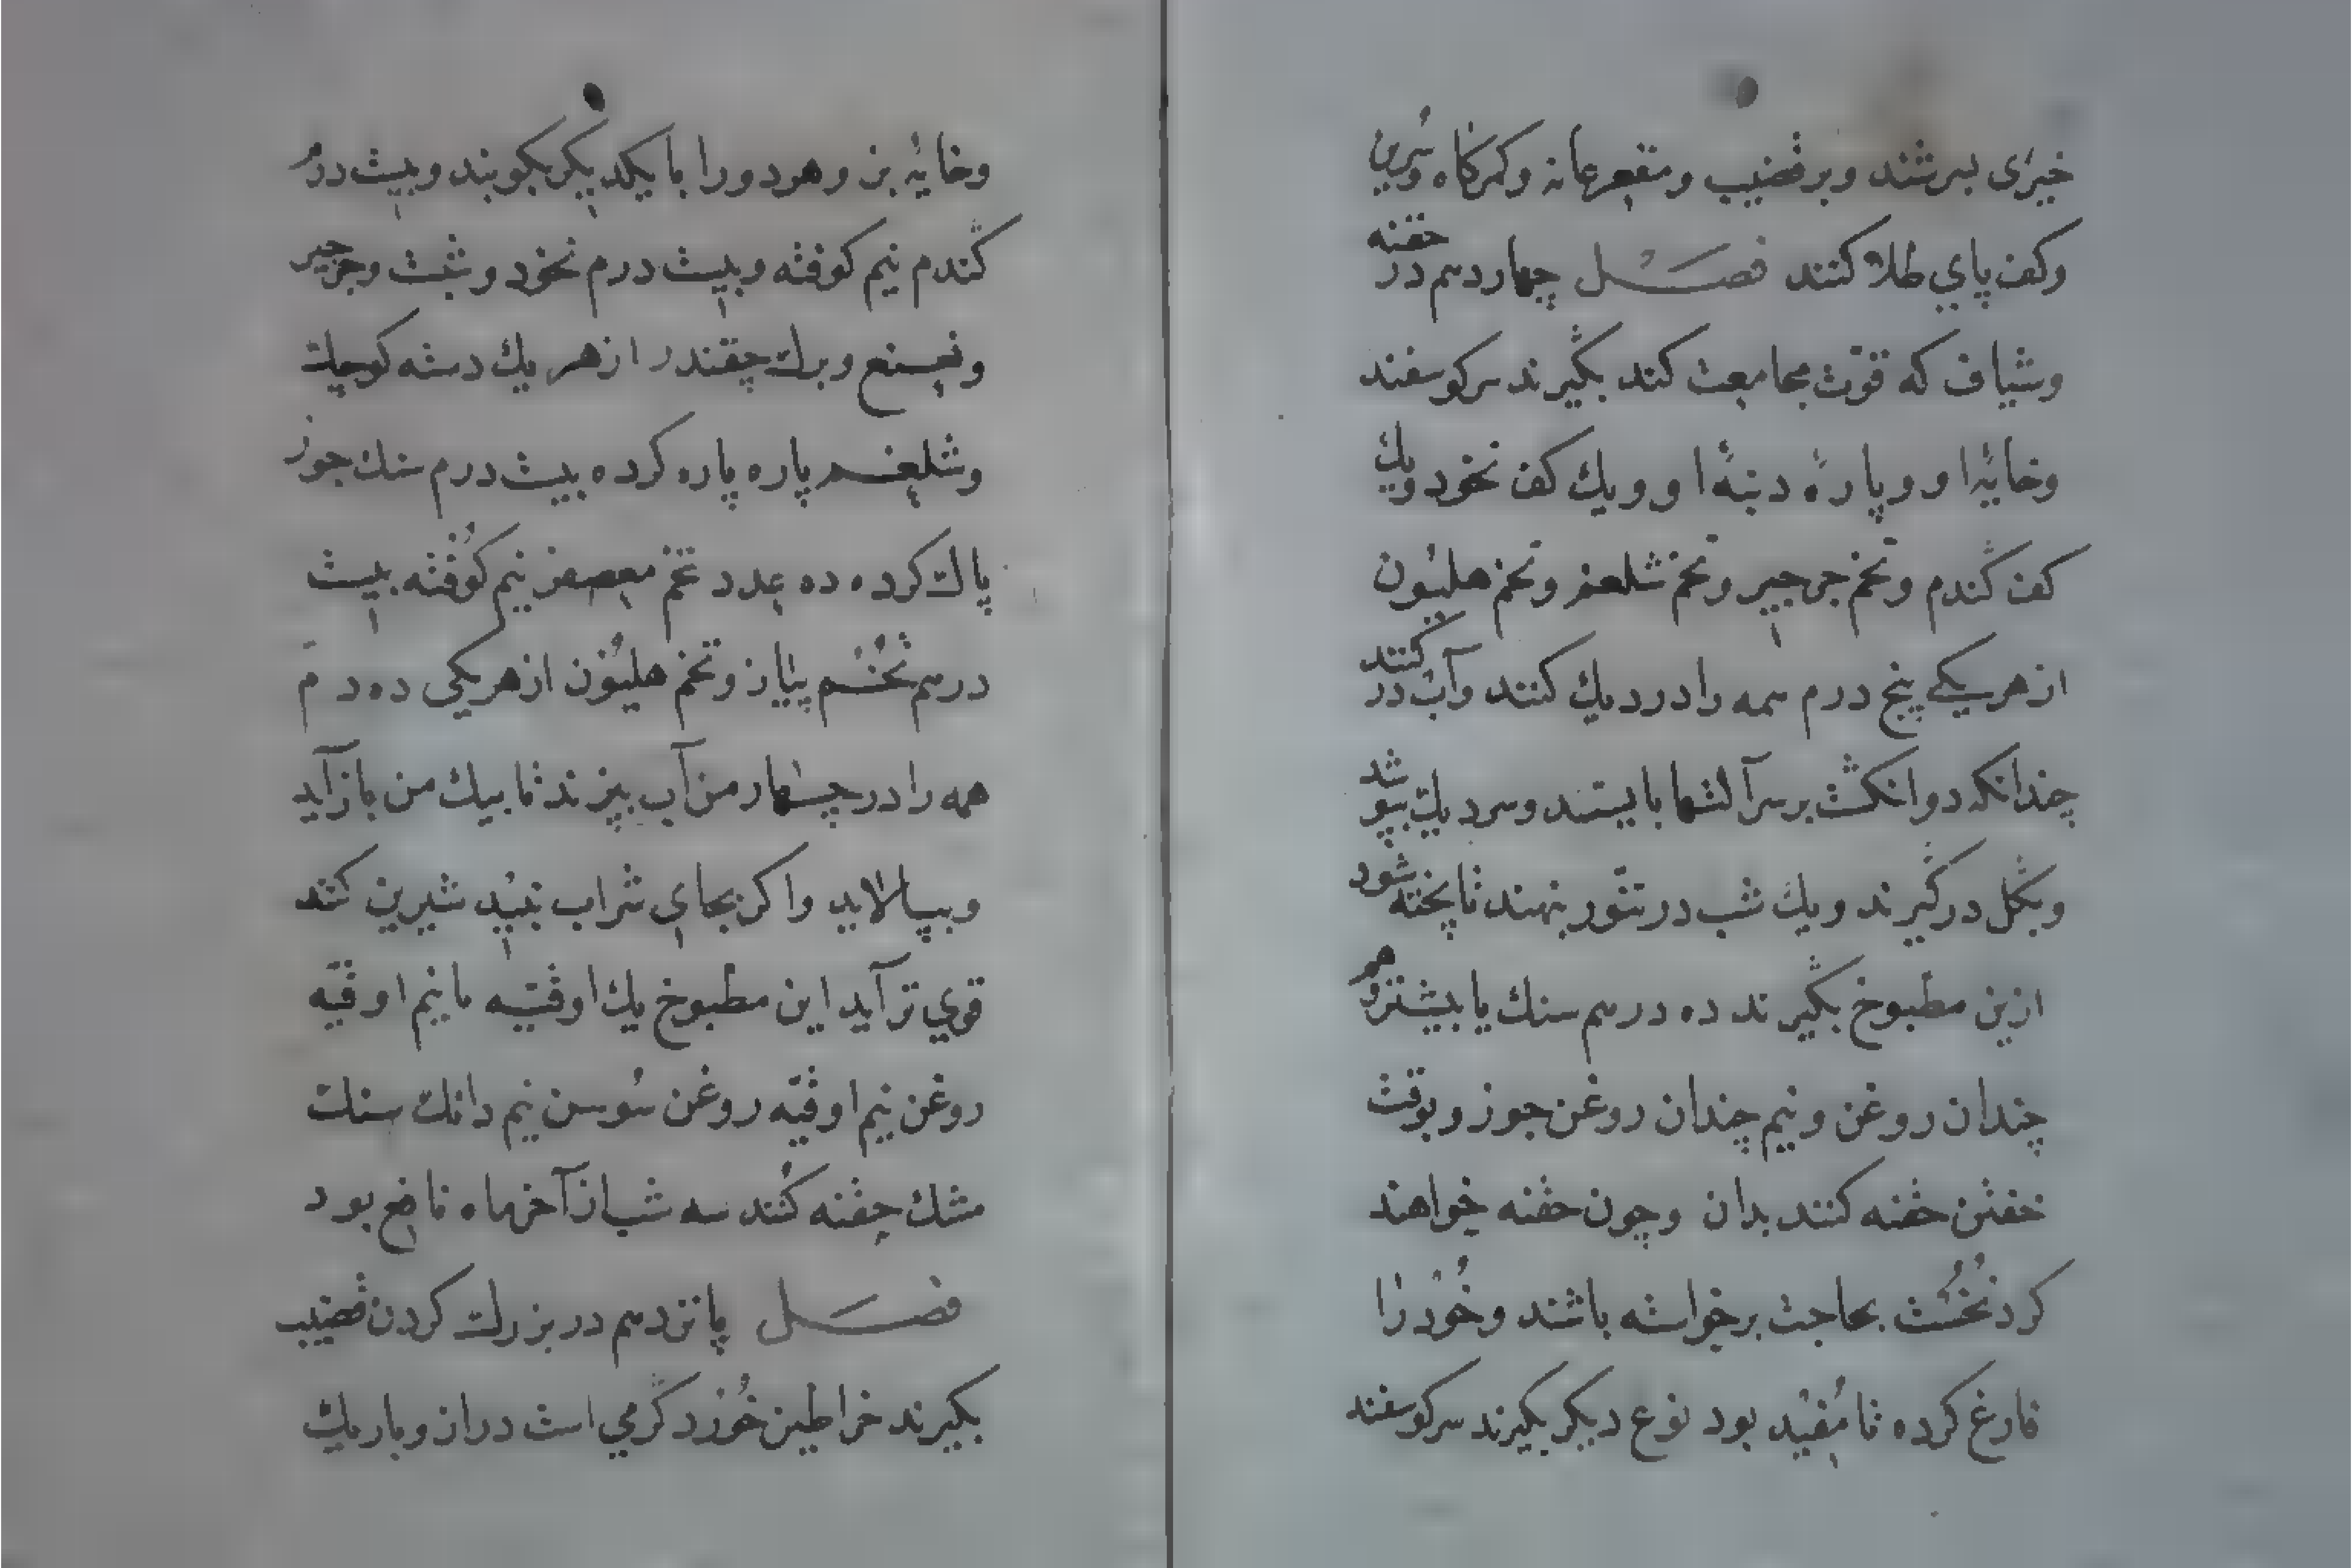 خیری بسرشند وبر قضیب ومقعر عانه وکمرکاه وسرین
وکف پای طلا کنند فصل چهاردهم در حقنه
وشیاف که قوّت مجامعت کند بکیرند سر کوسفند
وخایهٔ او وپارهٔ دنبهٔ او ویك کف نخود ویك
کف گندم وتخم جرجیر وتخم شلغم وتخم هلیون
از هر یکے پنج درم همه را در دیك کنند وآب در کنند
چندانکه دو انکشت بر سر آنها بایستد وسر دیك بپوشد
وبگل در گیرند ویك شب در تنّور بنهند تا پخته شود
ازین مطبوخ بگیرند ده درهم سنك یا بیشتر وهر
چندان روغن ونیم چندان روغن جوز وبوقت
خفتن حقنه کنند بدان وچون حقنه خواهند
کرد نخُست بحاجت برخواسته باشند وخُود را
فارغ کرده تا مُفید بود نوع دیکر بکیرند سر کوسفند
وخایهٔ بز وهر دو را با یکدیکر بکوبند وبیست درم
گندم نیم کوفته وبیست درم نخود وشبت وجرجیر
ونعنع وبرك چقندر از هر یك دسته کوچك
وشلغم پاره پاره کرده بیست درم سنك جوز
پاك کرده ده عدد تخم معصفر نیم کُوفته بیست
درهم تُخُم پیاز وتخم هلیُون از هر یکی ده درم
همه را در چهار من آب بپزند تا بیك من باز آید
وبپالاید واکر بجای شراب نبید شیرین کنند
قوی تر آید این مطبوخ یك اوقیّه با نیم اوقیّه
روغن نیم اوقیّه روغن سُوسن نیم دانك سنك
مشك حقنه کُنند سه شب از آخر ماه نافع بود
فصل پانزدهم در بزرك کردن قضیب
بکیرند خراطین خُورد گرمی است دراز وباریك